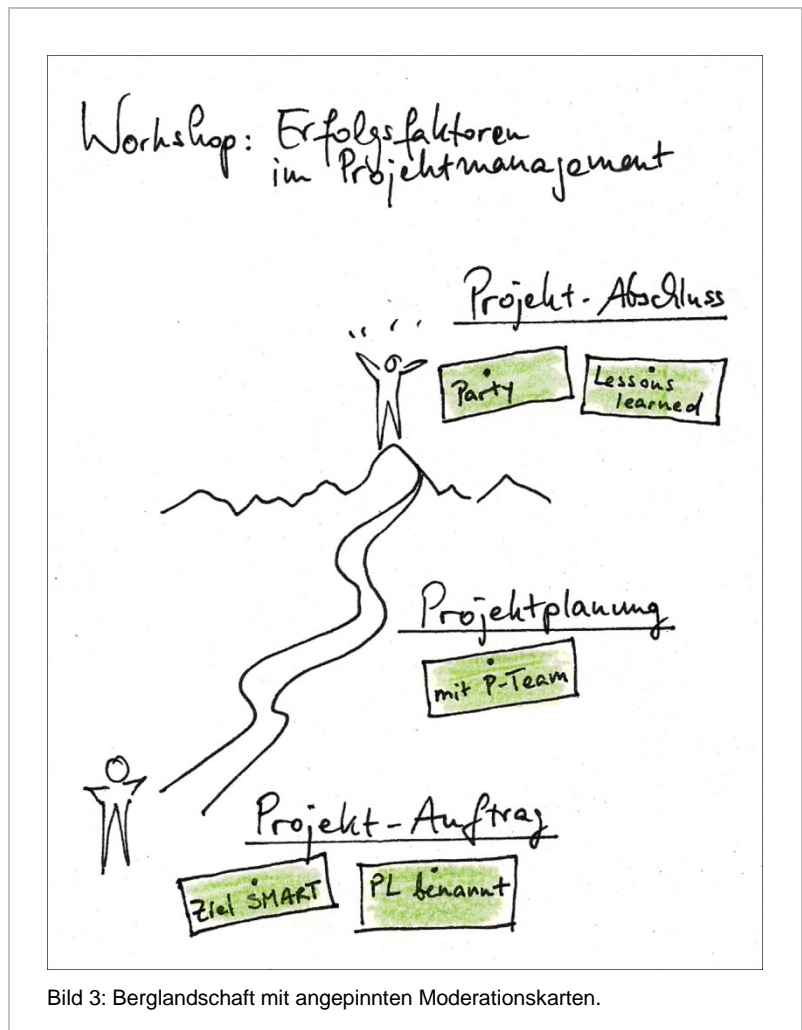 Workshop: Erfolgsfaktoren
im Projektmanagement
Projekt-Abschluss
Party
Lessons
learned
Projektplanung
mit P-Team
Projekt-Auftrag
Ziel SMART
PL benannt
Bild 3: Berglandschaft mit angepinnten Moderationskarten.